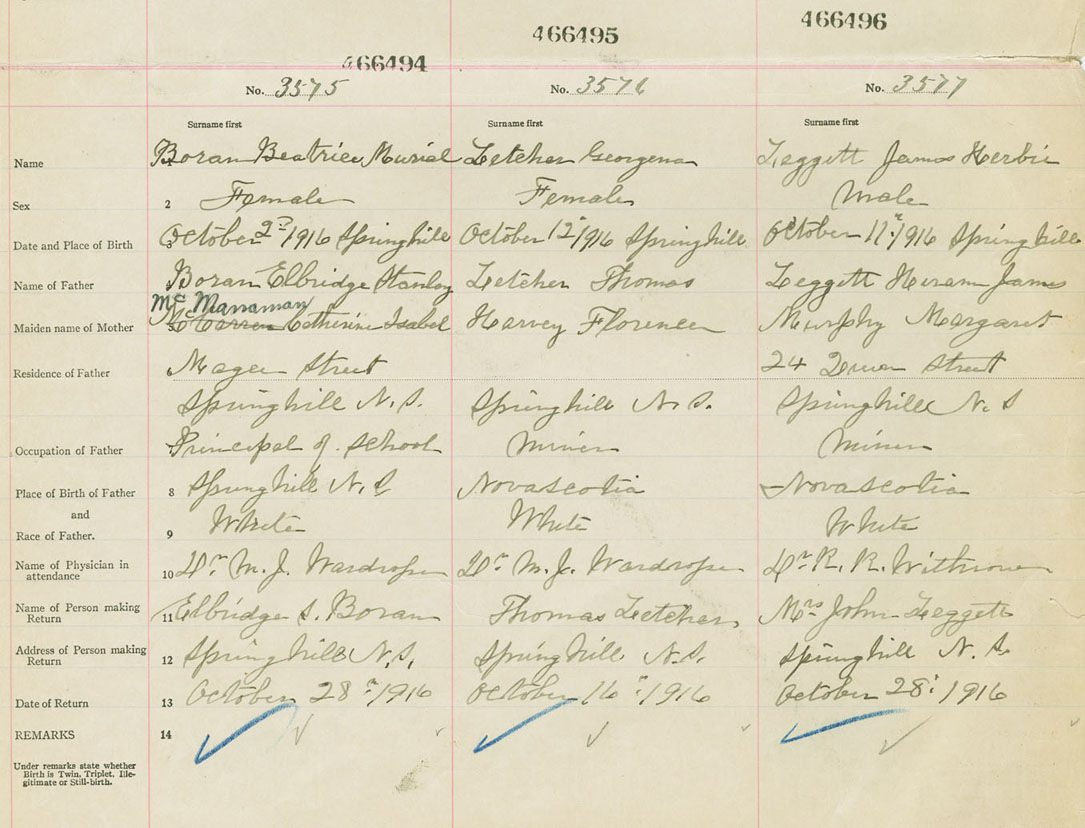 466494 466495 466496
No. 3575 No. 3576 No. 3577
Surname first Surname first Surname first
Name Boran Beatrice Murial Letcher Georgena Leggett James Herbie
Sex 2 Female Female Male
Date and Place of Birth October 2nd 1916 Springhill October 12" 1916 Springhill October 11" 1916 Springhill
Name of Father Boran Elbridge Stanley Letcher Thomas Leggett Hiram James
Mc Manaman
Maiden name of Mother Catherine Isabel Harvey Florence Murphy Margaret
Residence of Father 6 Magee Street 24 Street
Springhill N.S. Springhill N.S. Springhill N.S
Occupation of Father Principal of School Miner Miner
Place of Birth of Father 8 Springhill N.S Novascotia Novascotia
and
Race of Father. 9 White White White
Name of Physician in attendance 10 Dr M. J. Wardrope Dr M. J. Wardrope Dr R. R. Withrow
Name of Person making Return 11 Elbridge S. Boran Thomas Letcher Mrs John Leggett
Address of Person making Return 12 Springhill N.S. Springhill N.S. Springhill N.S.
Date of Return 13 October 28" 1916 October 16" 1916 October 28" 1916
REMARKS 14
Under remarks state whether
Birth is Twin, Triplet, Ille-
gitimate or Still-birth.